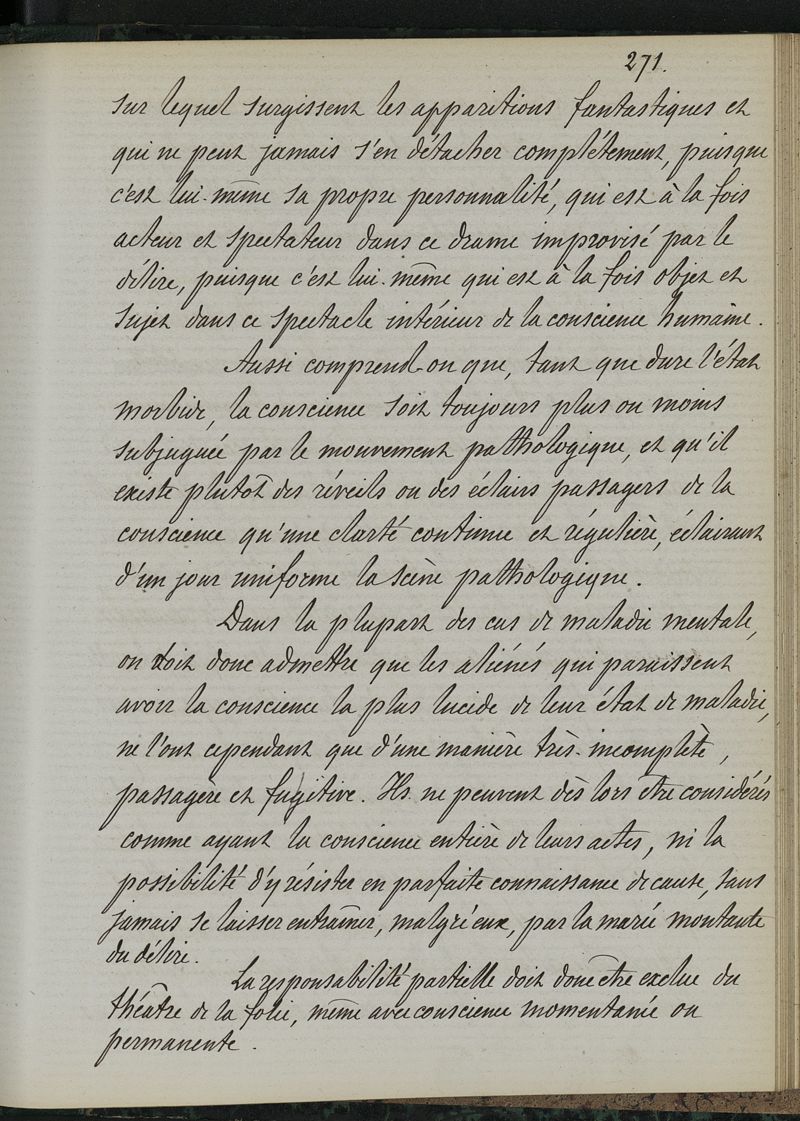 271.
sur lequel surgissent les apparitions fantastiques et
qui ne peut jamais s'en détacher complétement, puisque
c'est lui-même sa propre personnalité, qui est à la fois
acteur et spectateur dans ce drame improvisé par le
délire, puisque c'est lui-même qui est à la fois objet et
sujet dans ce spectacle intérieur de la conscience humaine.
Aussi comprend-on que, tant que dure l'état
morbide, la conscience soit toujours plus ou moins
subjuguée par le mouvement pathologique, et qu'il
existe plutôt des réveils ou des éclairs passagers de la
conscience qu'une clarté continue et régulière, éclairant
d'un jour uniforme la scène pathologique.
Dans la plupart des cas de maladie mentale,
on doit donc admettre que les aliénés qui paraissent
avoir la conscience la plus lucide de leur état de maladie,
ne l'ont cependant que d'une manière très-incomplète,
passagère et fugitive. Ils ne peuvent dès lors être considérés
comme ayant la conscience entière de leurs actes, ni la
possibilité d'y résister en parfaite connaissance de cause, sans
jamais se laisser entraîner, malgré eux, par la marée montante
du délire.
La responsabilité partielle doit donc être exclue du
théâtre de la folie, même avec conscience momentanée ou
permanente.